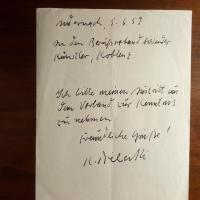 Andernach, 5.6.59
An den Berufsverband bildender
Künstler, Koblenz.
Ich bitte meinen Austritt aus
dem Verband zur Kenntnis
zu nehmen
Freundliche Grüße!